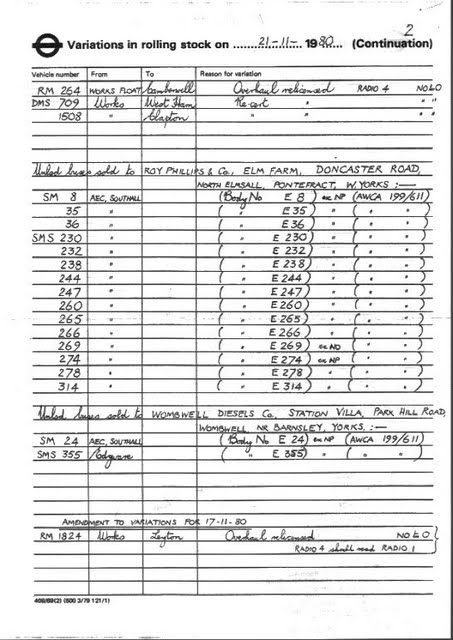 2
Variations in rolling stock on 21-11- 1980 (Continuation)
Vehicle number From To Reason for variation
RM 264 WORKS FLOAT Camberwell Overhaul relicensed RADIO 4 NO to O
DMS 709 Works West Ham Re-cert " " "
1508 " Clapton " " " "
Unlicd buses sold to ROY PHILLIPS & Co., ELM FARM, DONCASTER ROAD,
NORTH ELMSALL, PONTEFRACT, W. YORKS :—
SM 8 AEC, SOUTHALL (Body No E 8) ex NP (AWCA 199/611)
35 " ( " E 35 ) " ( " " )
36 " ( " E 36 ) " ( " " )
SMS 230 " ( " E 230 ) " ( " " )
232 " ( " E 232 ) " ( " " )
238 " ( " E 238 ) " ( " " )
244 " ( " E 244 ) " ( " " )
247 " ( " E 247 ) " ( " " )
260 " ( " E 260 ) " ( " " )
265 " ( " E 265 ) " ( " " )
266 " ( " E 266 ) " ( " " )
269 " ( " E 269 ) ex NO ( " " )
274 " ( " E 274 ) ex NP ( " " )
278 " ( " E 278 ) " ( " " )
314 " ( " E 314 ) " ( " " )
Unlicd buses sold to WOMBWELL DIESELS Co., STATION VILLA, PARK HILL ROAD,
WOMBWELL, NR BARNSLEY, YORKS. :—
SM 24 AEC, SOUTHALL (Body No E 24) ex NP (AWCA 199/611)
SMS 355 Edgware ( " E 355) " ( " " )
AMENDMENT TO VARIATIONS FOR 17-11-80
RM 1824 Works Leyton Overhaul relicensed NO to O
RADIO 4 should read RADIO 1
408/69(2) (600 3/79 121/1)